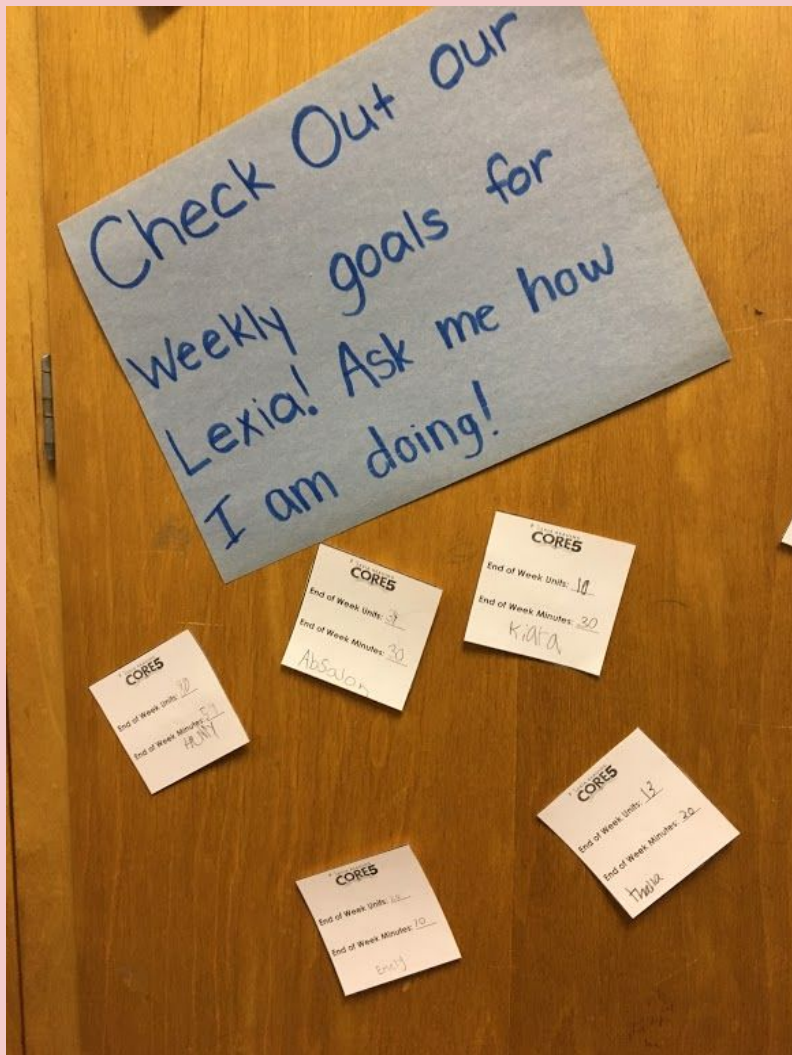 Check Out our
weekly goals for
Lexia! Ask me how
I am doing!
CORE5
End of Week Units: 10
End of Week Minutes: 30
Kiara
CORE5
End of Week Units:
End of Week Minutes: 30
Absalon
CORE5
End of Week Units:
End of Week Minutes:
CORE5
End of Week Units: 13
End of Week Minutes: 20
thalia
CORE5
End of Week Units:
End of Week Minutes: 70
Emely